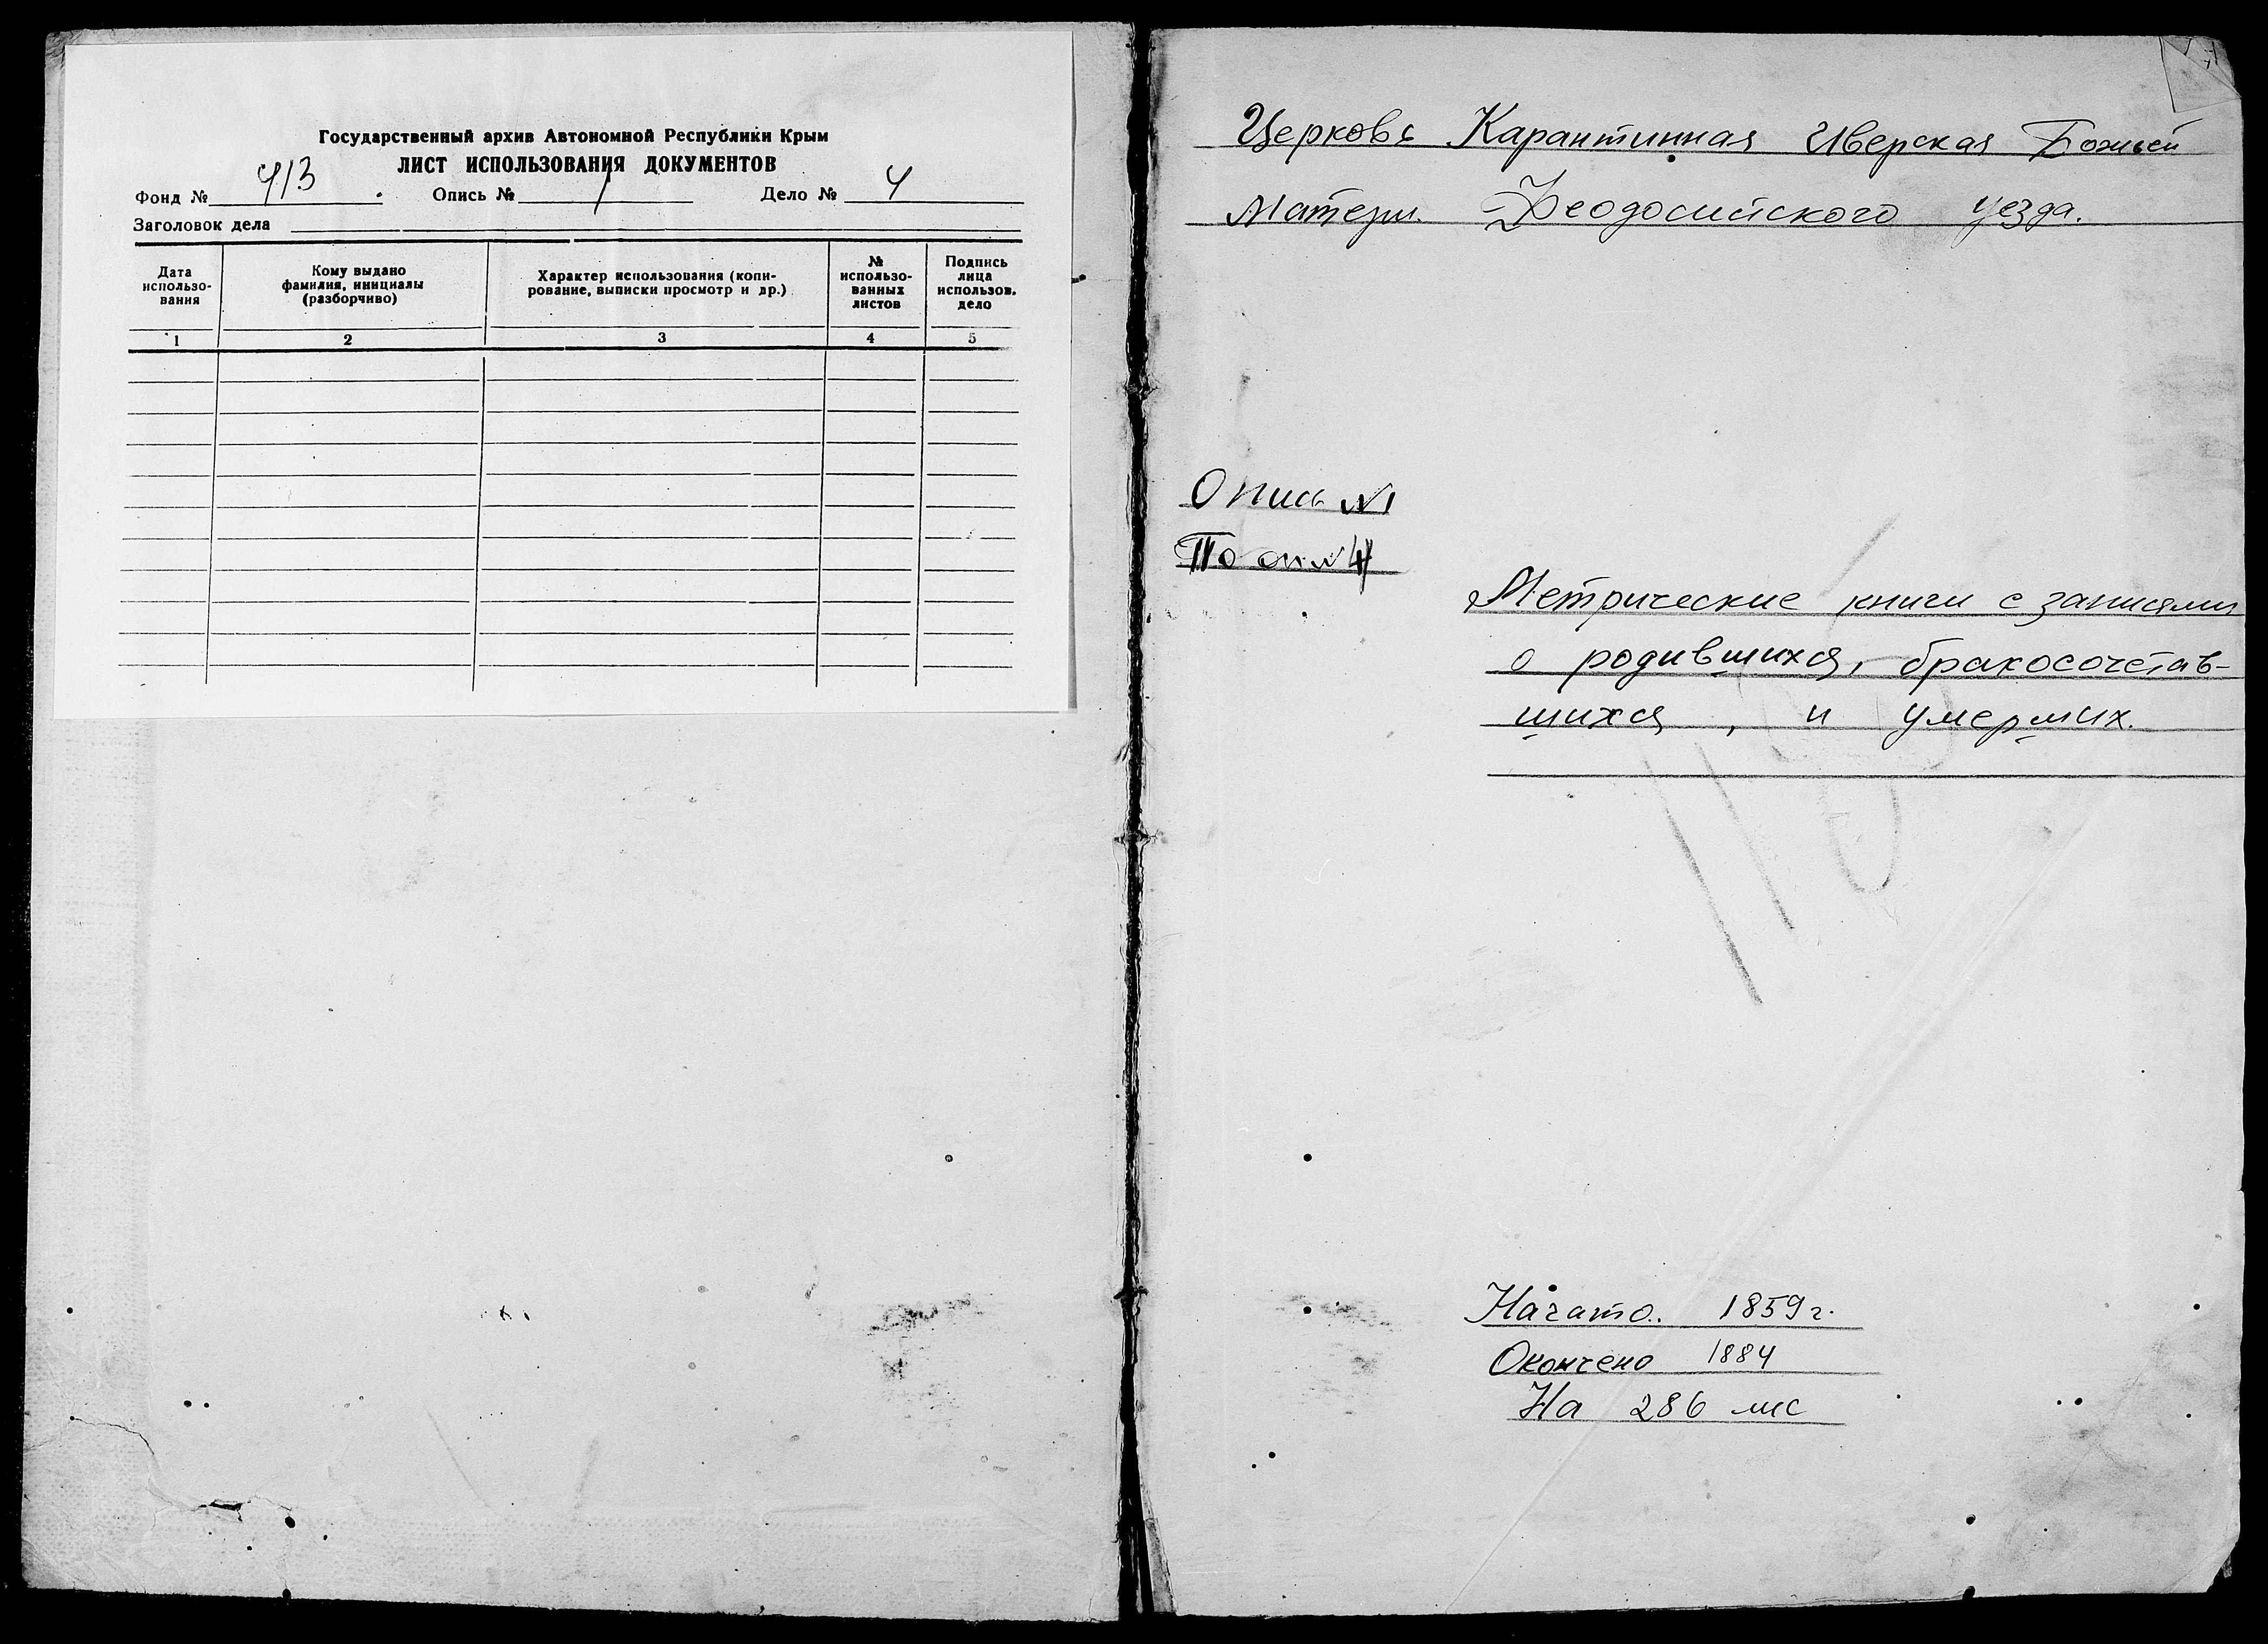 Государственный архив Автономной Республики Крым
ЛИСТ ИСПОЛЬЗОВАНИЯ ДОКУМЕНТОВ
Фонд № 413 Опись № 1 Дело № 4
Заголовок дела
Дата использо-вания
Кому выдано фамилия, инициалы (разборчиво)
Характер использования (копи-рование, выписки просмотр и др.)
№ использо-ванных листов
Подпись лица использов. дело
1 2 3 4 5
Церковь Карантинная Иверская Божьей
Матери. Феодосийского уезда.
Опись №1
По оп № 4
Метрические книги с записями
о родившихся, бракосочетав-
шихся, и умерших.
Начато. 1859 г.
Окончено 1884
На 286 лис